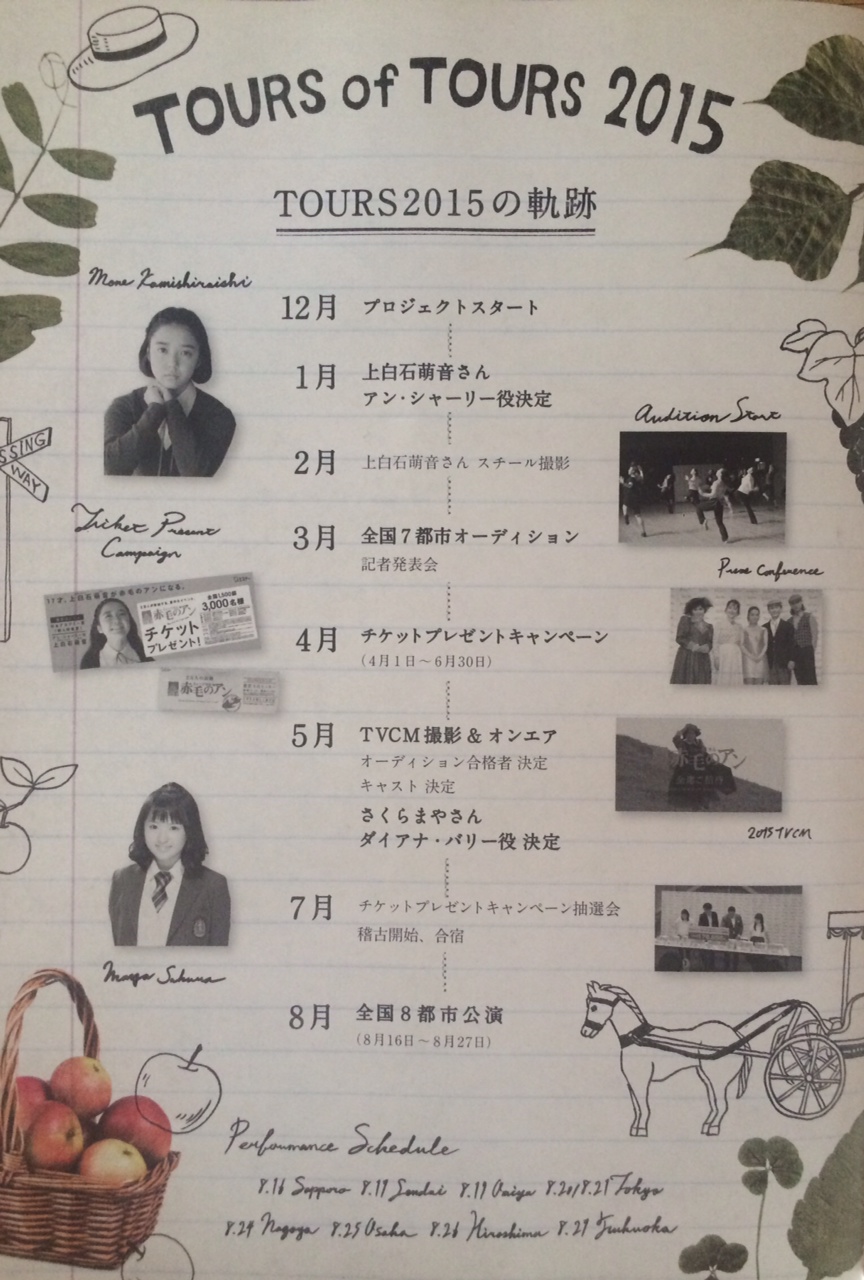 TOURS of TOURS 2015
TOURS2015の軌跡
Mone Kamishiraishi
12月 プロジェクトスタート
1月 上白石萌音さん
アン・シャーリー役決定
2月 上白石萌音さん スチール撮影
Audition Start
3月 全国7都市オーディション
記者発表会
Present
Campaign
Press Conference
17才、上白石萌音が赤毛のアンになる。
赤毛のアン
3,000名様
チケット
プレゼント!
赤毛のアン
4月 チケットプレゼントキャンペーン
(4月1日〜6月30日)
5月 TVCM撮影 & オンエア
オーディション合格者 決定
キャスト 決定
さくらまやさん
ダイアナ・バリー役 決定
赤毛のアン
2015 TVCM
7月 チケットプレゼントキャンペーン抽選会
稽古開始、合宿
8月 全国8都市公演
(8月16日〜8月27日)
SSING
WAY
Performance Schedule
8.16 Sapporo 8.17 Sendai 8.20/8.21 Tokyo
8.24 Nagoya 8.25 Osaka 8.26 Hiroshima